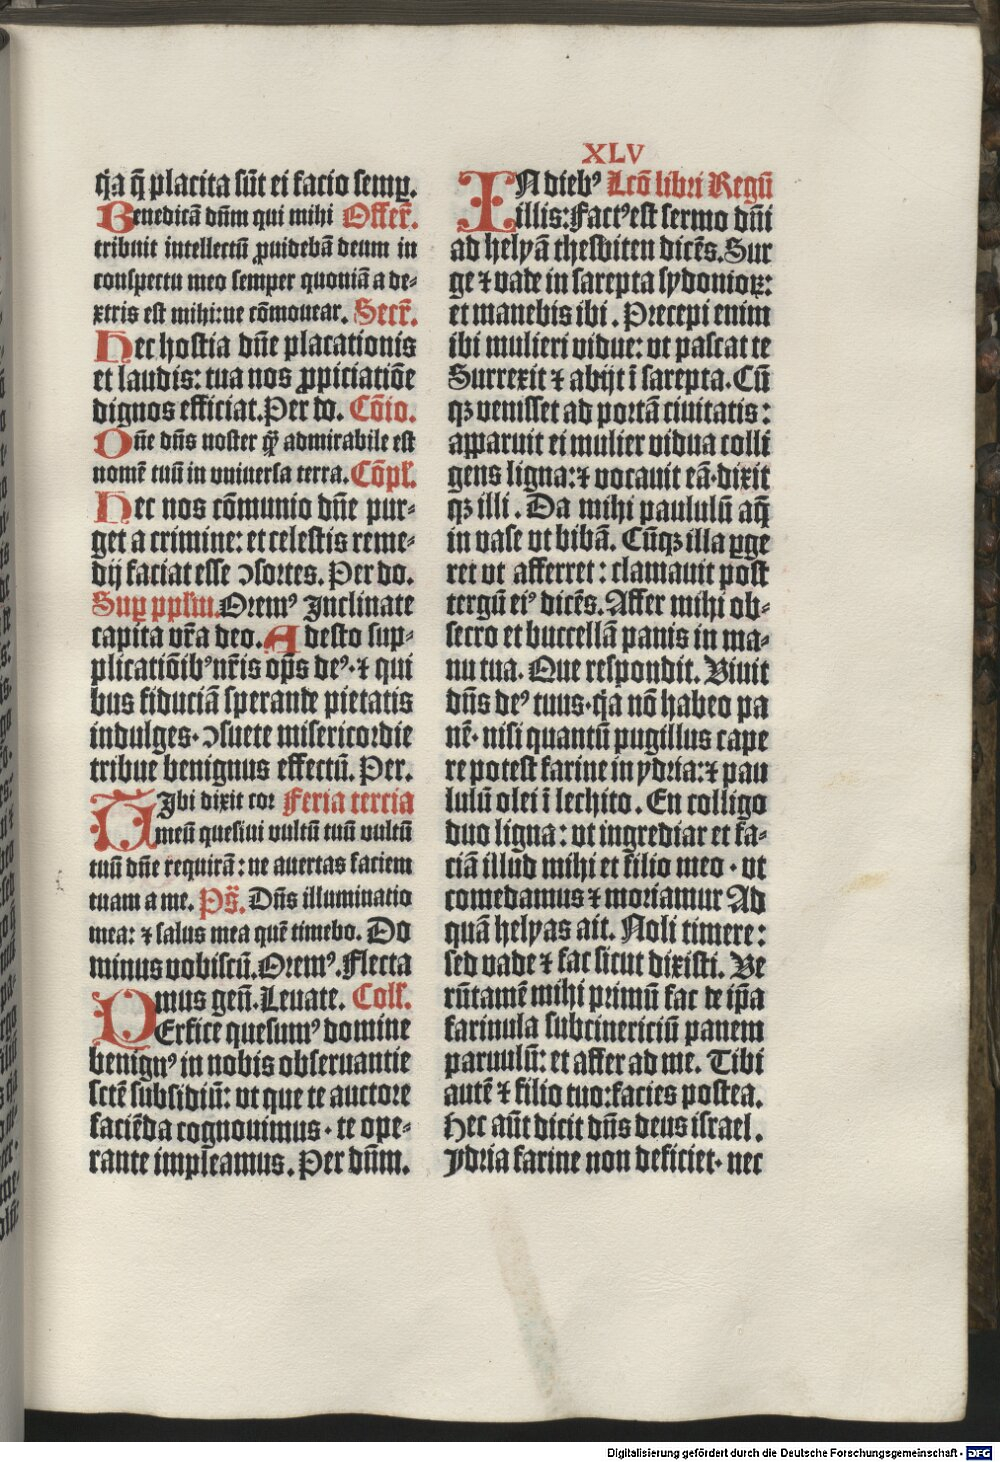 XLV
q̄a q̄ placita sūt ei facio semꝑ.
Benedicā dn̄m qui mihi Offer̄.
tribuit intellectū ꝓuidebā deum in
conspectu meo semper quoniā a de-
xtris est mihi: ne cōmouear. Secr̄.
Hec hostia dn̄e placationis
et laudis: tua nos ꝓpiciatiōe
dignos efficiat. Per do. Cōio.
One dn̄s noster q̄ȝ admirabile est
nomē tuū in vniuersa terra. Cōpł.
Hec nos cōmunio dn̄e pur-
get a crimine: et celestis reme-
dij faciat esse ↄsortes. Per do.
Suꝑ ppłm. Oremꝰ Inclinate
capita vr̄a deo. Adesto sup-
plicatiōibꝰ nr̄is op̄s deꝰ. ⁊ qui
bus fiduciā sperande pietatis
indulges. ↄsuete misericordie
tribue benignus effectū. Per.
TIbi dixit cor Feria tercia
meū quesiui vultū tuū vultū
tuū dn̄e requirā: ne auertas faciem
tuam a me. Ps̄. Dn̄s illuminatio
mea: ⁊ salus mea quē timebo. Do
minus vobiscū. Oremꝰ. Flecta
mus gen̄. Leuate. Coll̄.
PErfice quesumꝰ domine
benignꝰ in nobis obseruantie
sctē subsidiū: vt que te auctore
faciēda cognouimus. te ope-
rante impleamus. Per dn̄m.
IN diebꝰ Lcō libri Regū
illis: Factꝰ est sermo dn̄i
ad helyā thesbiten dicēs. Sur
ge ⁊ vade in sarepta sydonioꝝ:
et manebis ibi. Precepi enim
ibi mulieri vidue: vt pascat te
Surrexit ⁊ abijt ī sarepta. Cū
qȝ venisset ad portā ciuitatis:
apparuit ei mulier vidua colli
gens ligna: ⁊ vocauit eā. dixit
qȝ illi. Da mihi paululū aq̄
in vase vt bibā. Cūqȝ illa ꝑge
ret vt afferret: clamauit post
tergū eiꝰ dicēs. Affer mihi ob-
secro et buccellā panis in ma-
nu tua. Que respondit. Viuit
dn̄s deꝰ tuus. q̄a nō habeo pa
nē. nisi quantū pugillus cape
re potest farine in ydria: ⁊ pau
lulū olei ī lechito. En colligo
duo ligna: vt ingrediar et fa-
ciā illud mihi et filio meo. vt
comedamus ⁊ moriamur Ad
quā helyas ait. Noli timere:
sed vade ⁊ fac sicut dixisti. Ve
rūtamē mihi primū fac de ip̄a
farinula subcinericiū panem
paruulū: et affer ad me. Tibi
autē ⁊ filio tuo: facies postea.
Hec aūt dicit dn̄s deus israel.
Ydria farine non deficiet. nec
Digitalisierung gefördert durch die Deutsche Forschungsgemeinschaft - DFG